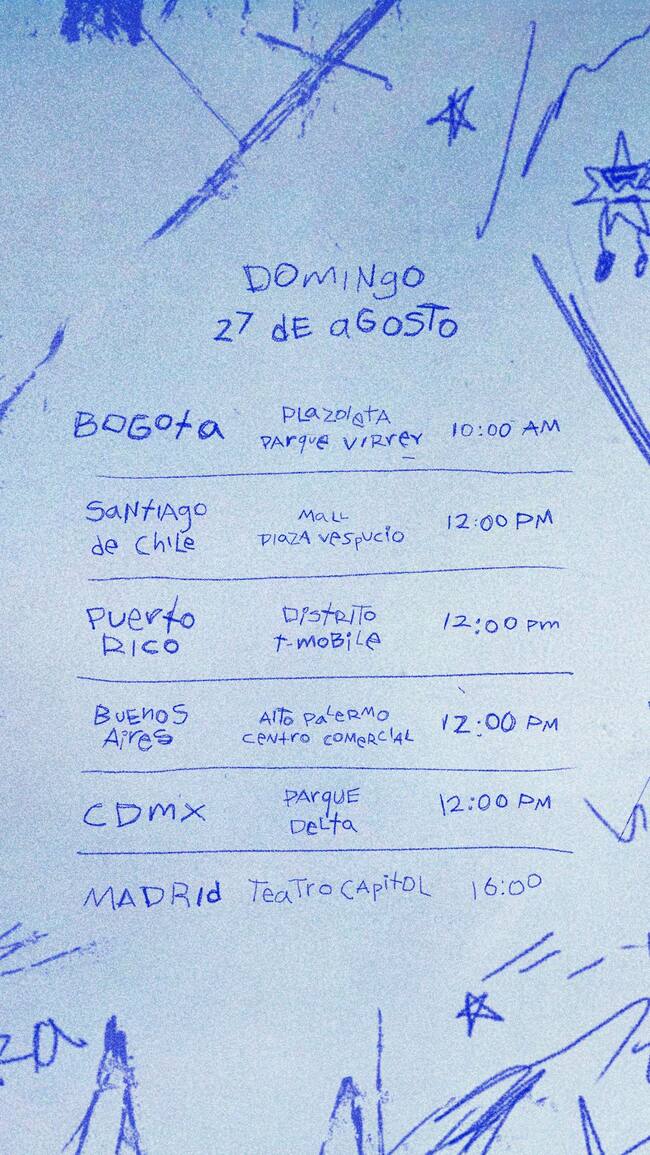 DOMINgO
27 dE aGOSTO
BOGOta
PLAZOletA
PArque VIRrey
10:00 AM
SaNtIAgo
de ChILe
MaLL
PlaZA vespucio
12:00 PM
PUerto
RICO
DistRITO
t-MOBiLe
12:00 pm
BUENOS
AIres
AltO PaLERMO
CENtrO COMeRCIAL
12:00 PM
CDMX
PARQUE
DeLta
12:00 PM
MADRId TeaTrO CApitOL 16:00
za